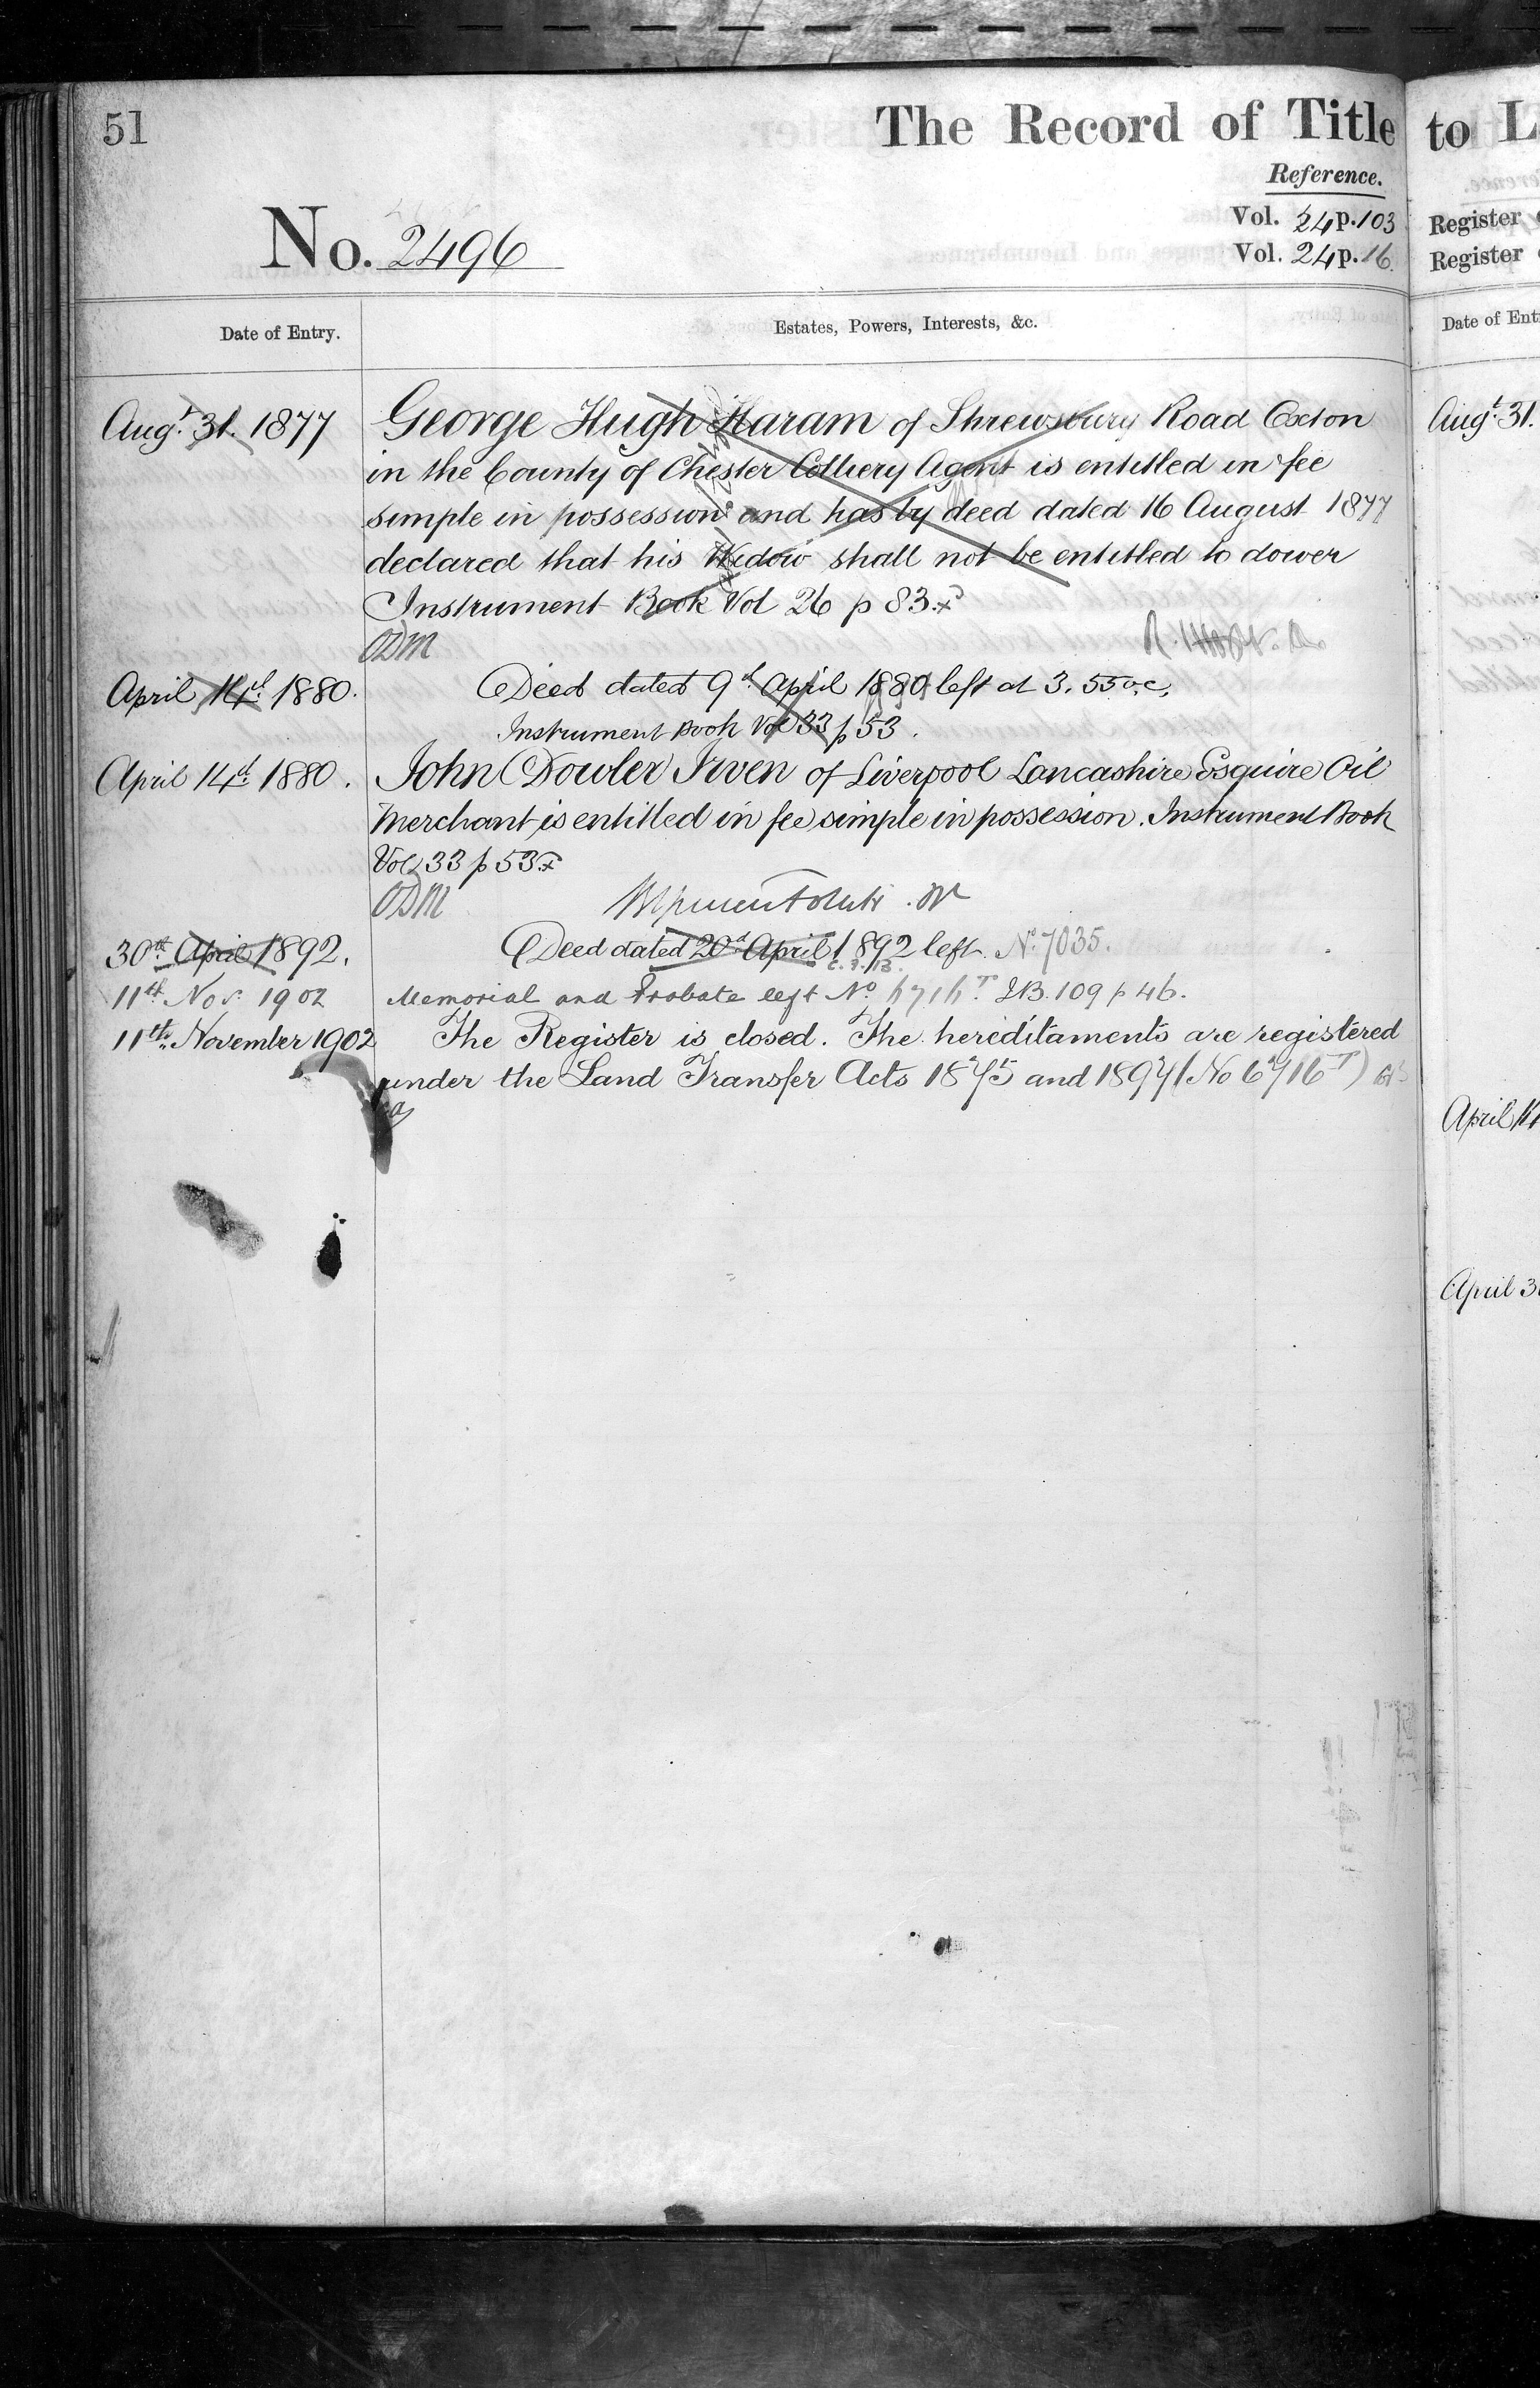 51
The Record of Title to L
Reference.
No. 2496
Vol. 24 p. 103
Vol. 24 p. 16.
Register
Register
Date of Entry.
Estates, Powers, Interests, &c.
Date of Ent
Augt. 31. 1877
George Hugh Haram of Shrewsbury Road Oxton
in the County of Chester Colliery Agent is entitled in fee
simple in possession and has by deed dated 16 August 1877
declared that his Widow shall not be entitled to dower
Instrument Book Vol 26 p 83.
ODM
April 14th 1880.
Deed dated 9th April 1880 left at 3.55 o.c.
Instrument Book Vol 33 p 53.
April 14th 1880.
John Dowler Irven of Liverpool Lancashire Esquire Oil
Merchant is entitled in fee simple in possession. Instrument Book
Vol 33 p 53.
ODM
30th April 1892.
Deed dated 20th April 1892 left. No. 7035.
11th Nov. 1902
Memorial and Probate left No 6716 T. I.B. 109 p 46.
11th November 1902
The Register is closed. The hereditaments are registered
under the Land Transfer Acts 1875 and 1897 (No 6716 T)
Augt. 31.
April 14
April 3